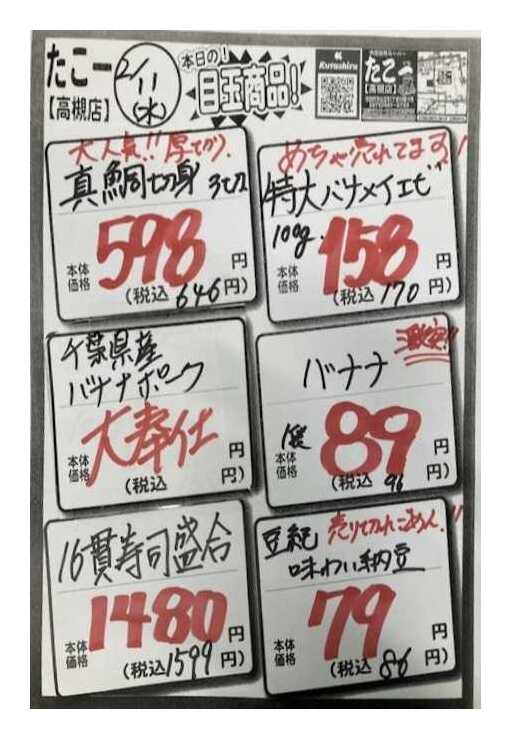 たこ一
【高槻店】
2/11
(水)
本日の!
目玉商品!
Kurashiru
たこ一
【高槻店】
大人気!! 厚切り
真鯛切身 3切
598
本体価格
円
(税込 646円)
めちゃ売れてます!
特大バナメイエビ
100g
158
本体価格
円
(税込 170円)
千葉県産
バナナポーク
大奉仕
本体価格
円
(税込 円)
激安!!
バナナ
1袋
89
本体価格
円
(税込 96円)
16貫寿司盛合
1480
本体価格
円
(税込 1599円)
豆紀 売り切れごめん!!
味わい納豆
79
本体価格
円
(税込 86円)